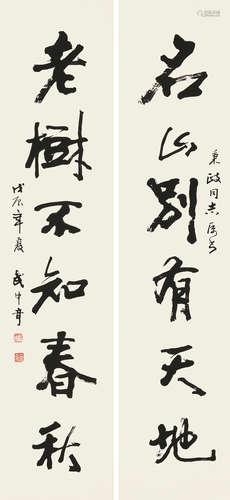 名山别有天地
東政同志属书
老樹不知春秋
戊辰年夏
武中奇